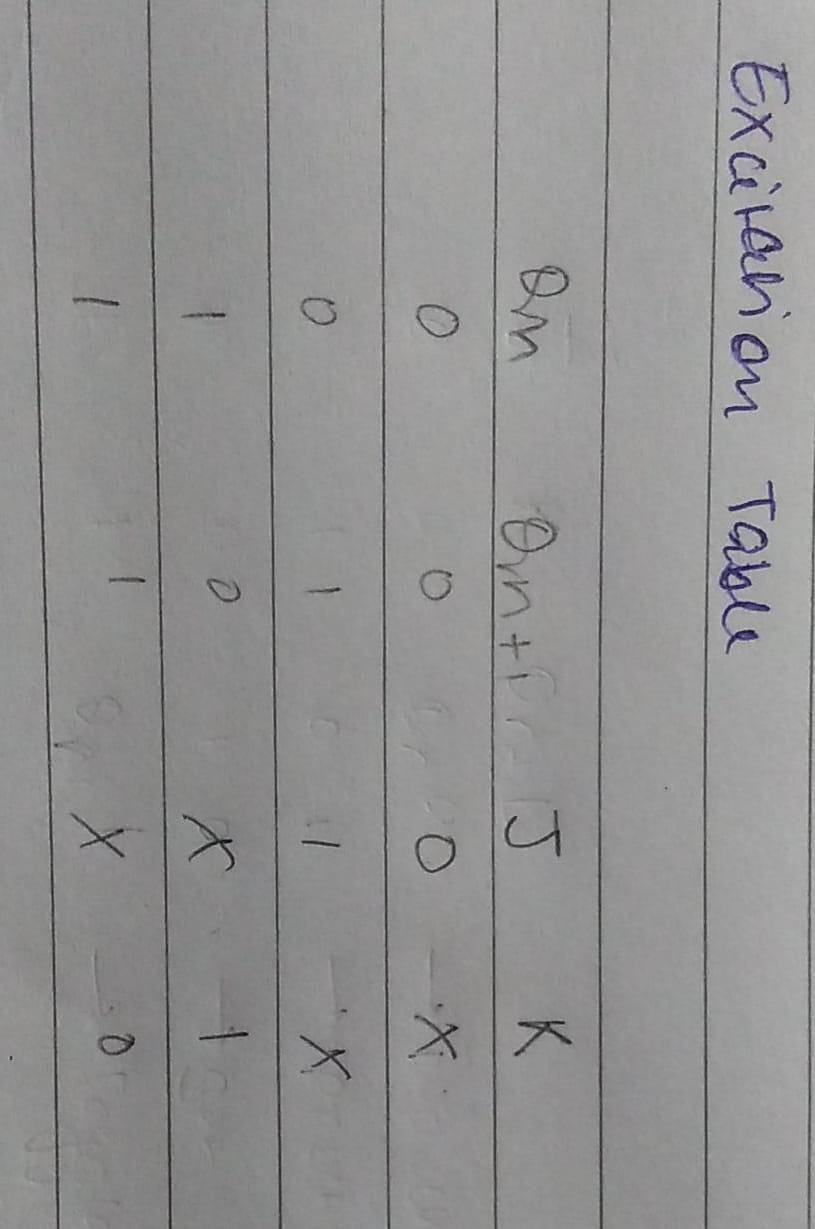 Excitation Table
Qn Qn+1 J K
0 0 0 X
0 1 1 X
1 0 X 1
1 1 X 0